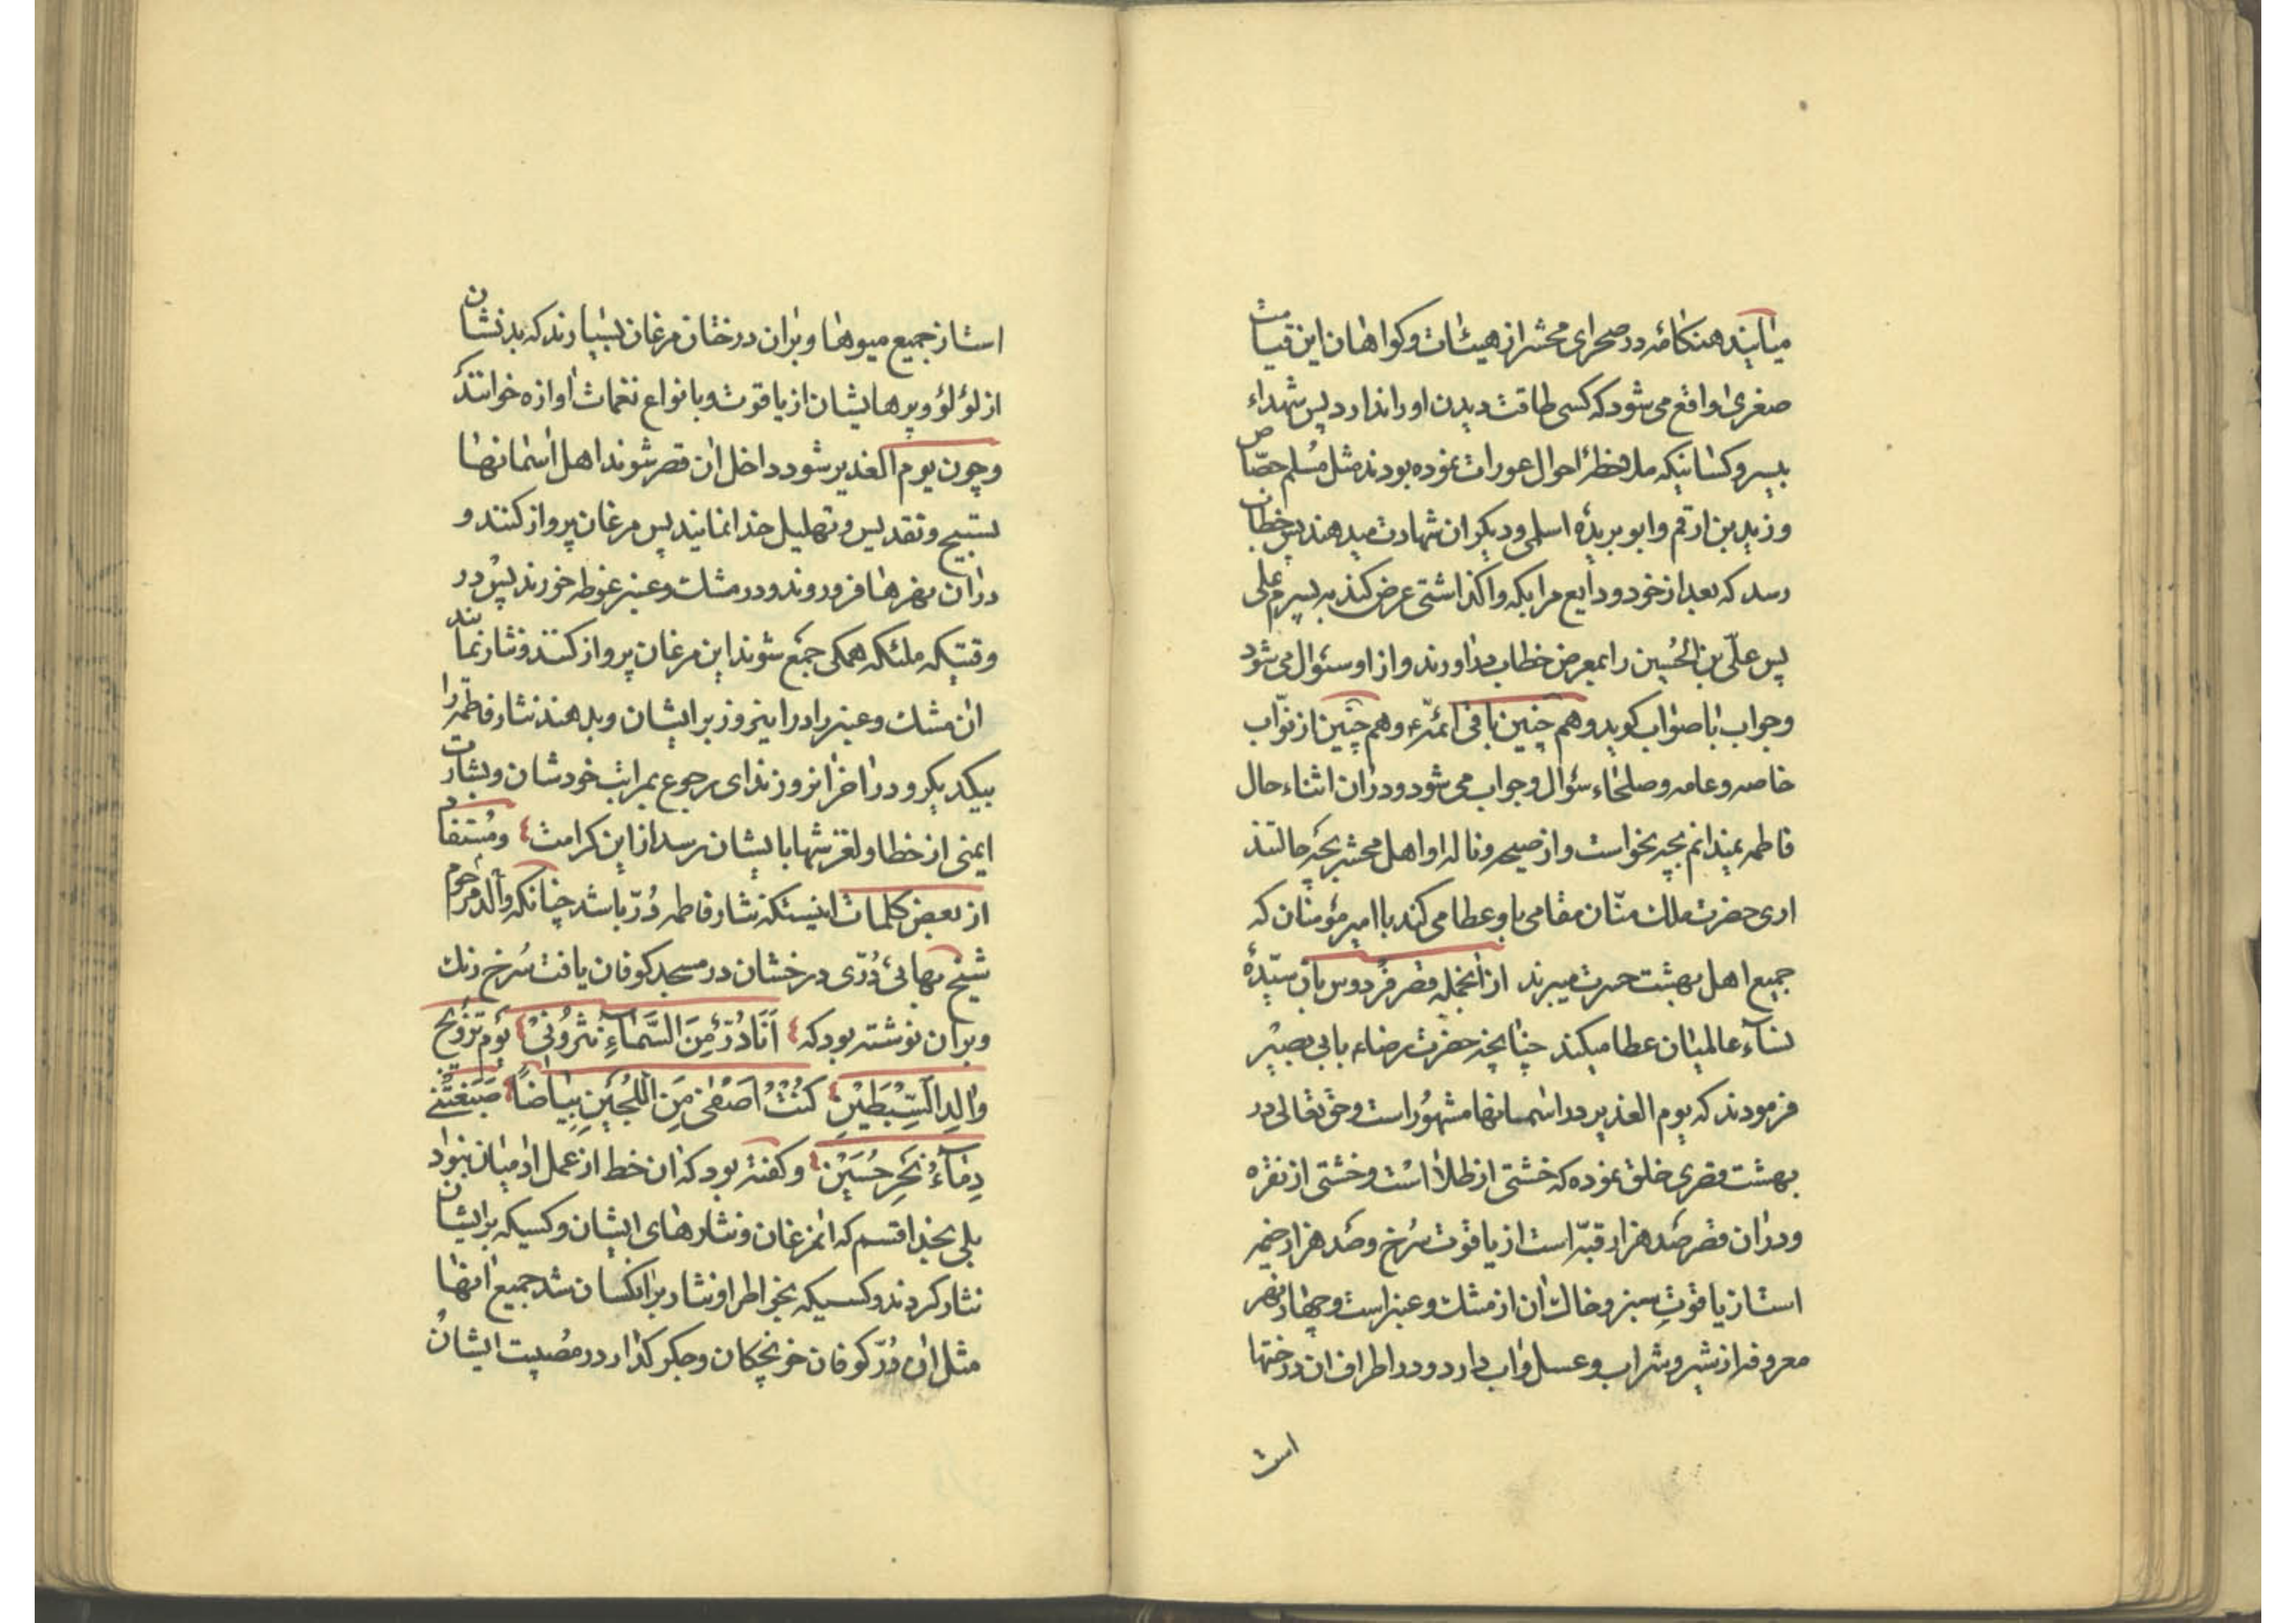 میآیند هنکامه در صحرای محشر از هیئات و کواهان این قیامت
صغری واقع می شود که کسی طاقت دیدن او را ندارد پس شهداء
بیسر و کسانیکه ملاحظۀ احوال عورات نموده بودند مثل مسلم جصّاص
و زید بن ارقم و ابو بریدۀ اسلمی و دیکران شهادت میدهند پس خطاب
رسد که بعد از خود ودایع مرا بکه واکذاشتی عرض کند به پسرم علی
پس علّی بن الحُسین را بمعرض خطاب در اورند و از او سئوال می شود
و جواب با صواب کوید و هم چنین باقی ائمّه ء و هم چنین از نوّاب
خاصه و عامه و صلحاء سؤال و جواب می شود و در ان اثناء حال
فاطمه نمیدانم بچه نحو است و از صیحه و ناله او اهل محشر بچه حالتند
اری حضرت ملك منّان مقامی باو عطا می کند با امیر مؤمنان که
جمیع اهل بهشت حسرت میبرند از آنجمله قصر فردوس بان سیّدۀ
نسآء عالمیان عطا میکند چنانچه حضرت رضاء بابی بصیر
فرمودند که یوم الغدیر در اسمانها مشهُور است و حق تعالی در
بهشت قصری خلق نموده که خشتی از طلا است و خشتی از نقره
و در ان قصر صد هزار قبّه است از یاقوت سُرخ و صد هزار خیمه
است از یاقوتِ سبز و خاك ان از مشك و عنبر است و چهار نهر
معروفه از شیر و شراب و عسل و اب دارد و در اطراف ان درختها
است
است از جمیع میوها و بران درختان مرغان بسیارند که بدنشان
از لؤلؤ و پرهایشان از یاقوت و بانواع نغمات اوازه خوانند
و چون یوم الغدیر شود داخل ان قصر شوند اهل اسمانها
تسبیح و تقدیس و تهلیل خدا نمایند پس مرغان پرواز کنند و
در ان نهرها فرو روند و در مشك و عنبر غوطه خورند پس در
وقتیکه ملئکه همکی جمع شوند این مرغان پرواز کنند و نثار نمایند
ان مشك و عنبر را در اینروز بر ایشان و بدهند نثار فاطمه را
بیکدیکر و در اخر انروز ندای رجوع بمراتب خودشان و بشارت
ایمنی از خطا و لغزشها بایشان رسد از این کرامت و مُستفاد
از بعض کلمات اینستکه نثار فاطمه دُرّ باشد چنانکه والد مرحوم
شیخ بهائی دُرّی درخشان در مسجد کوفان یافت سُرخ رنك
و بران نوشته بود که اَنَا دُرٌّ مِنَ السَّمآءِ نَثَرُونیْ یَوْم تَزْوِیْج
والِدِ السِّبْطَیْنِ کُنْتُ اَصْفیٰ مِنَ اللُّجَیْنِ بَیَاضاً صَبَغَتْنے
دِمآءُ نَحْرِ حُسَیْنِ و کفته بود که ان خط از عمل ادمیان نبود
بلی بخدا قسم که انمرغان و نثارهای ایشان و کسیکه بر ایشان
نثار کردند و کسیکه بخواطر او نثار بر انکسان شد جمیع انها
مثل ان دُرّ کوفان خونچکان و جکر کذار در مصیبت ایشان